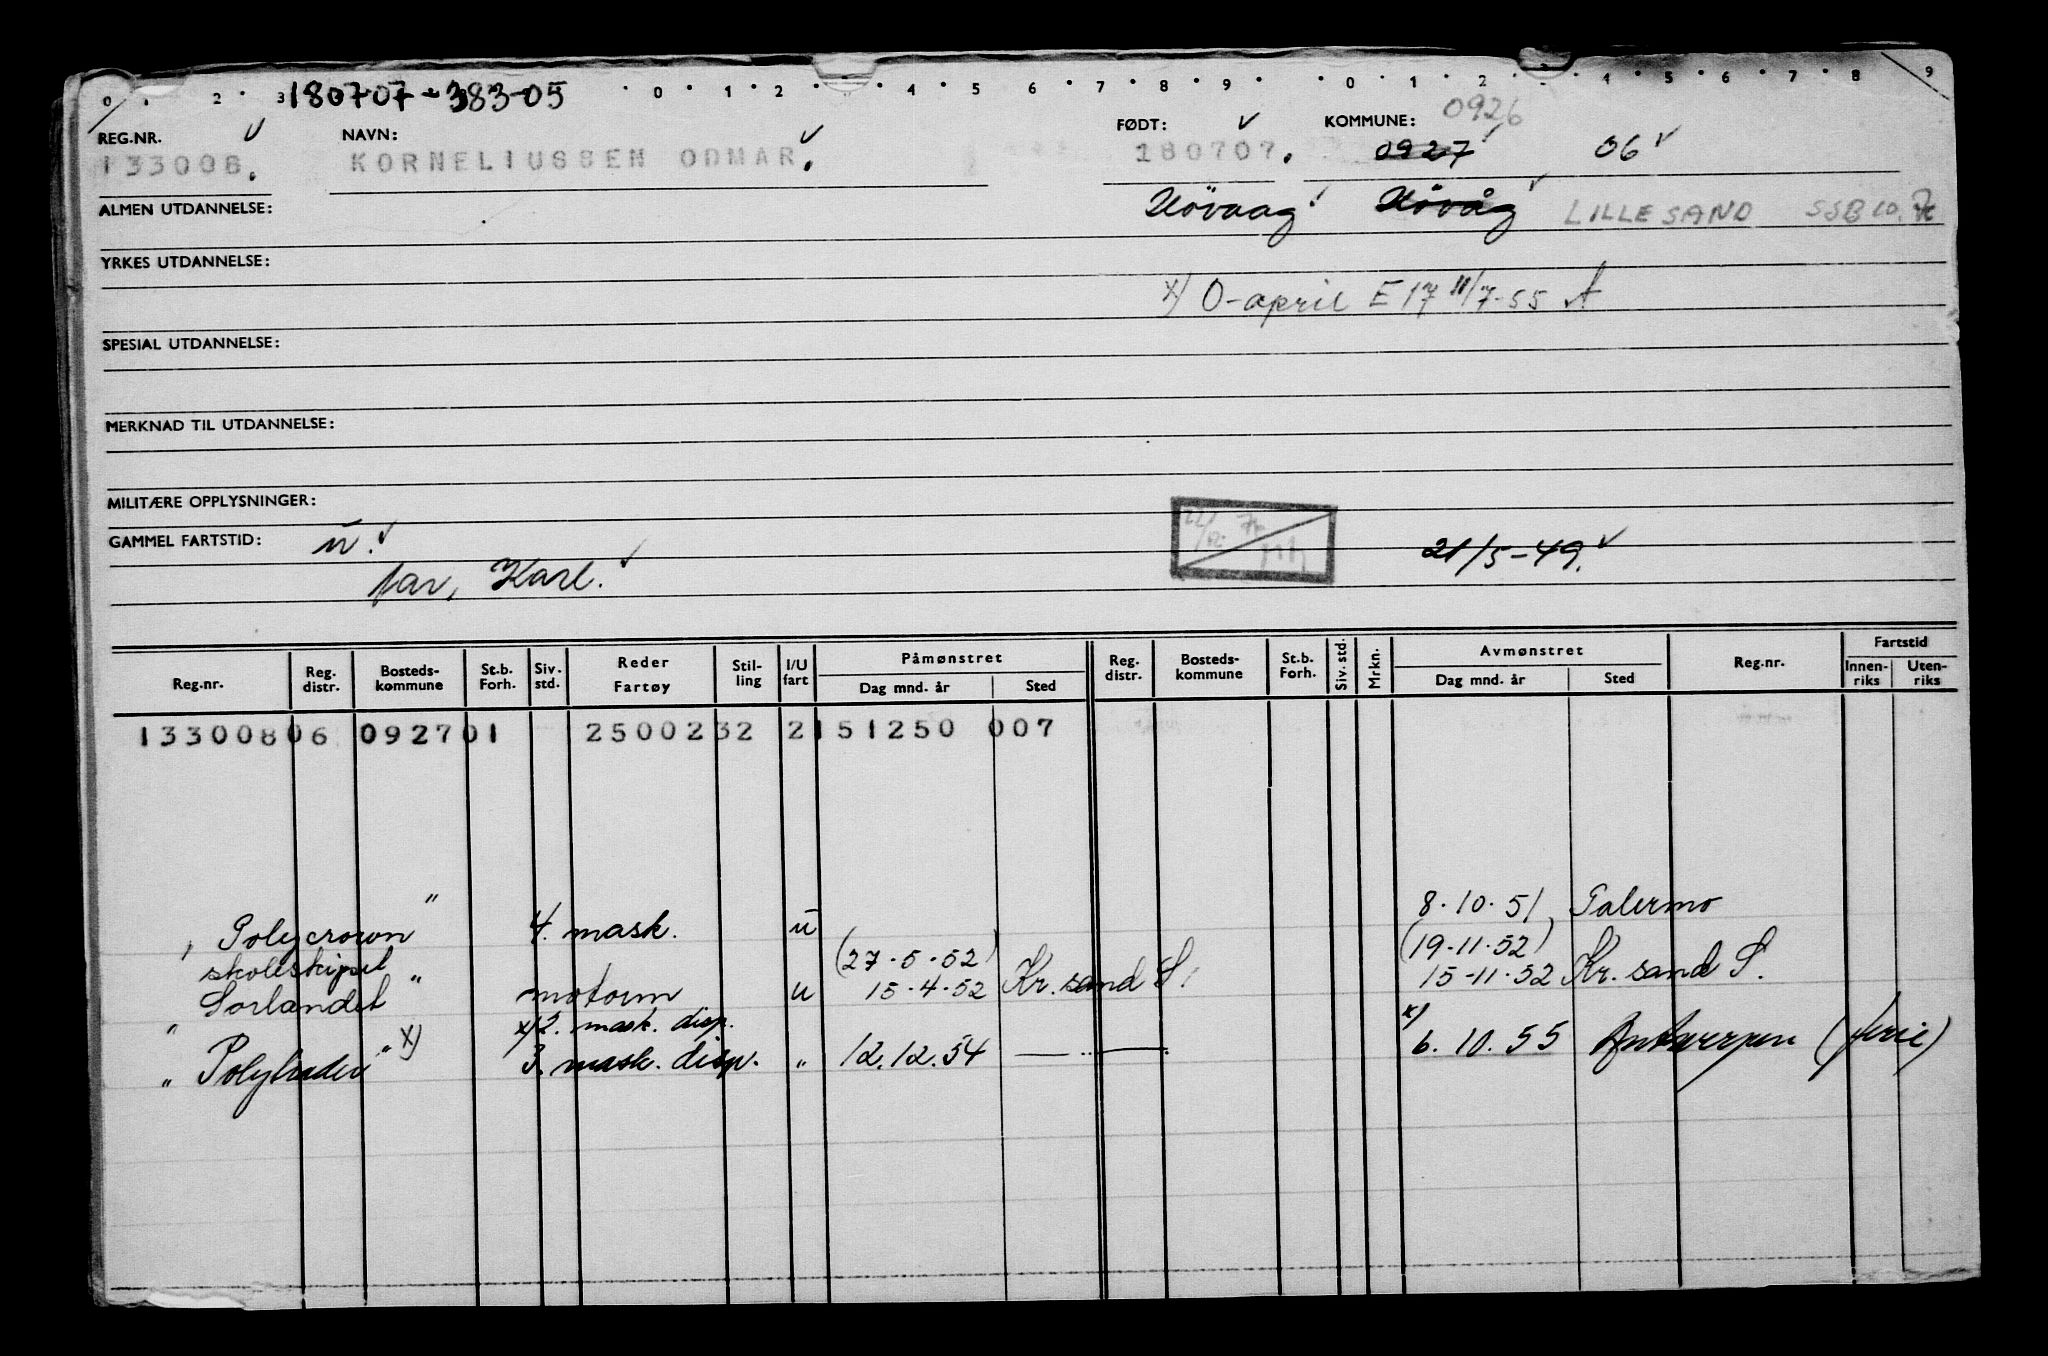 0 2 3 180707-383-05 0 1 2 4 5 6 7 8 9 0 1 2 3 4 5 6 7 8 9
REG.NR. NAVN: FØDT: KOMMUNE: 0926
133008. KORNELIUSSEN ODMAR. 180707. 0927 06
ALMEN UTDANNELSE: Høvaag Høvåg LILLESAND SSB 10.
YRKES UTDANNELSE:
x) O-april E 17 11/7-55 A
SPESIAL UTDANNELSE:
MERKNAD TIL UTDANNELSE:
MILITÆRE OPPLYSNINGER:
GAMMEL FARTSTID: u. 21/5-49.
far, Karl.
Reg.nr. Reg. distr. Bosteds-kommune St.b. Forh. Siv. std. Reder Fartøy Stil-ling I/U fart Påmønstret Dag mnd. år Sted Reg. distr. Bosteds-kommune St.b. Forh. Siv. std. Mrkn. Avmønstret Dag mnd. år Sted Reg.nr. Fartstid Innen-riks Uten-riks
133008 06 0927 01 25002 32 2 151250 007
" 8.10.51, Palermo
Polycrown 4. mask. u
skoleskipet " (27.5.52) (19-11-52)
Sørlandet motorm u 15.4.52 Kr.sand S. 15-11-52 Kr.sand S.
" x) x) 2. mask. disp. x)
" Polytrader " 3. mask. disp. " 12.12.54 — " — 6.10.55 Antwerpen (ferie)